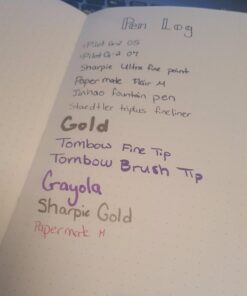 Pen Log
Pilot G-2 05
Pilot G-2 07
Sharpie Ultra fine point
Papermate Flair M
Jinhao fountain pen
Staedtler triplus fineliner
Gold
Tombow Fine Tip
Tombow Brush Tip
Crayola
Sharpie Gold
Papermate M